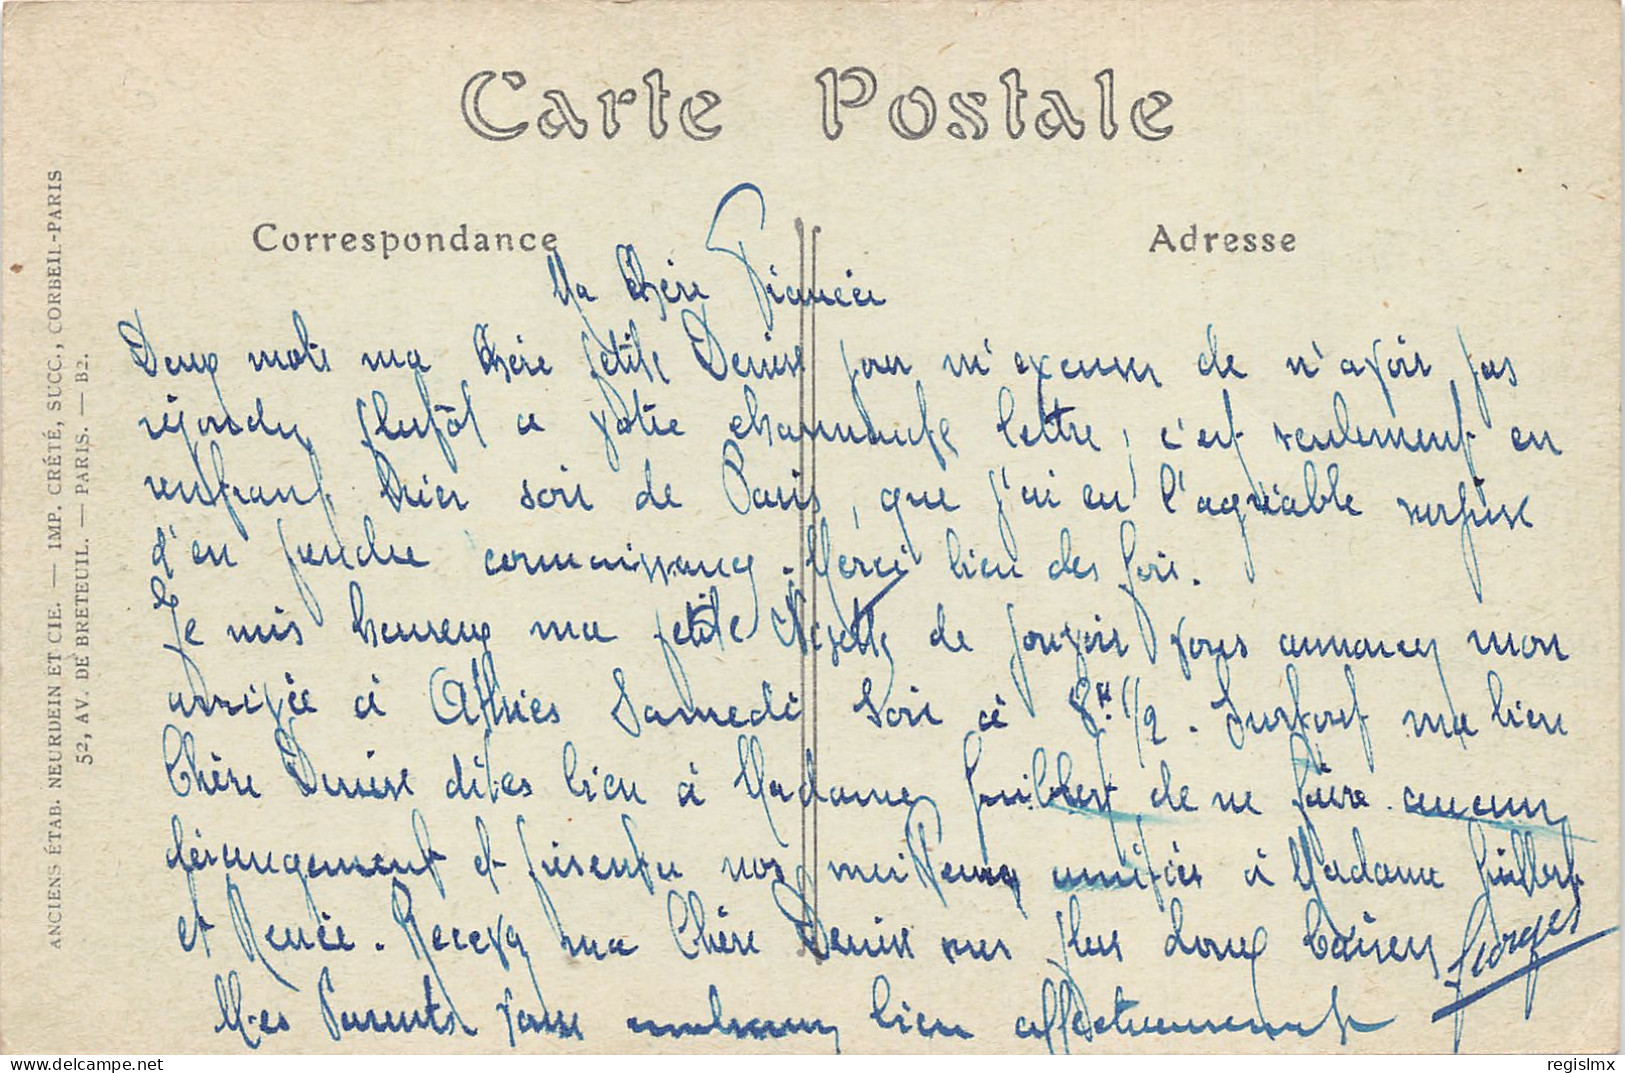 Carte Postale
Correspondance
Adresse
Ma Chère Fiancée
Deux mots ma Chère petite Denise pour m'excuser de n'avoir pas
répondu plutôt a votre charmante lettre, c'est seulement en
rentrant hier soir de Paris, que j'ai eu l'agréable surprise
d'en prendre connaissance. Merci bien des fois.
Je suis heureux ma petite de pouvoir vous annoncer mon
arrivée à Athies Samedi soir à 8H 1/2. Surtout ma bien
Chère Denise dites bien à Madame Guilbert de ne faire aucun
dérangement et présentez nos meilleures amitiés à Madame Guilbert
et Renée. Recevez ma Chère Denise mes plus doux baisers
Georges
Mes Parents vous embrassent bien affectueusement
ANCIENS ÉTAB. NEURDEIN ET CIE. — IMP. CRÉTÉ, SUCC., CORBEIL-PARIS
52, AV. DE BRETEUIL. — PARIS. — B2.
delcampe.net
regislmx